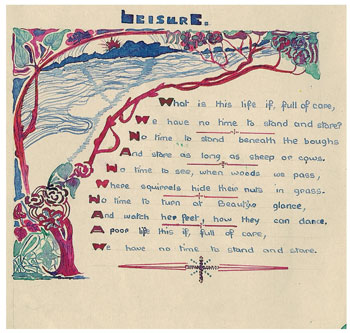 LEISURE.
What is this life if, full of care,
We have no time to stand and stare?
No time to stand beneath the boughs
And stare as long as sheep or cows.
No time to see, when woods we pass,
Where squirrels hide their nuts in grass.
No time to turn at Beautys glance,
And watch her feet, how they can dance.
A poor life this if, full of care,
We have no time to stand and stare.